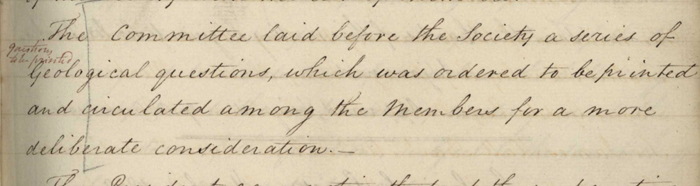 The Committee laid before the Society a series of
Questions
to be printed
Geological questions, which was ordered to be printed
and circulated among the Members for a more
deliberate consideration.—